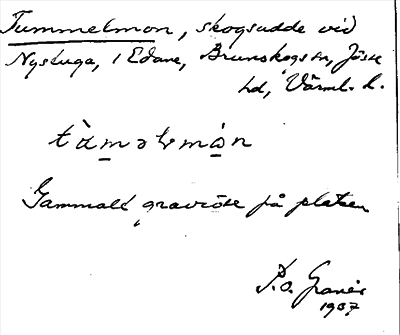 Tummelmon, skogsudde vid
Nystuga, i Edane, Brunskogs sn, Jösse
hd, Värml. l.
tàməlmȧn
Gammalt gravröse på platsen
P.O. Granér
1937